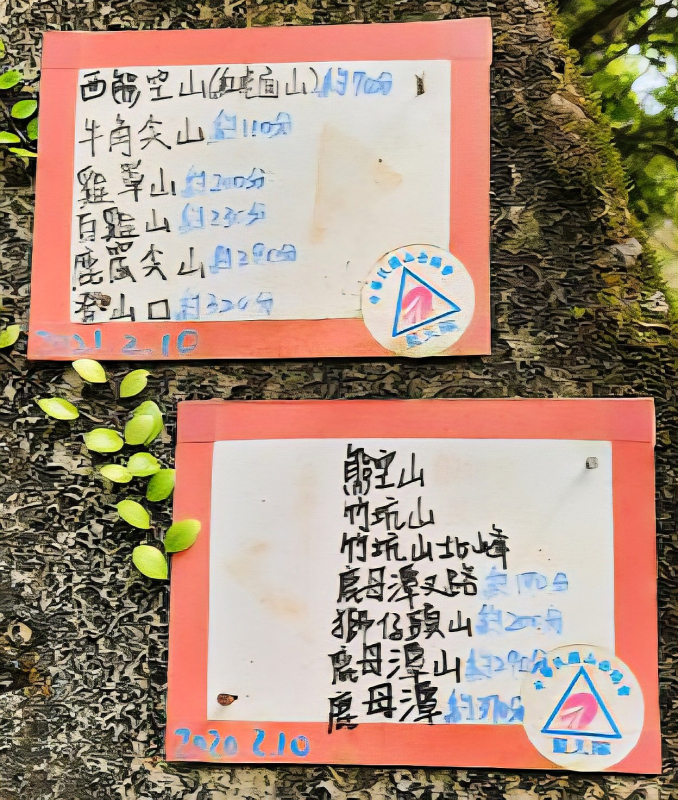 西熊空山(紅 面山)約70分
牛角尖山 約110分
雞罩山 約200分
白雞山 約230分
鹿窟尖山 約290分
登山口 約320分
2.10
熊空山
竹坑山
竹坑山北峰
鹿母潭叉路 約170分
獅仔頭山 約200分
鹿母潭山 約290分
鹿母潭 約370分
2020 2.10